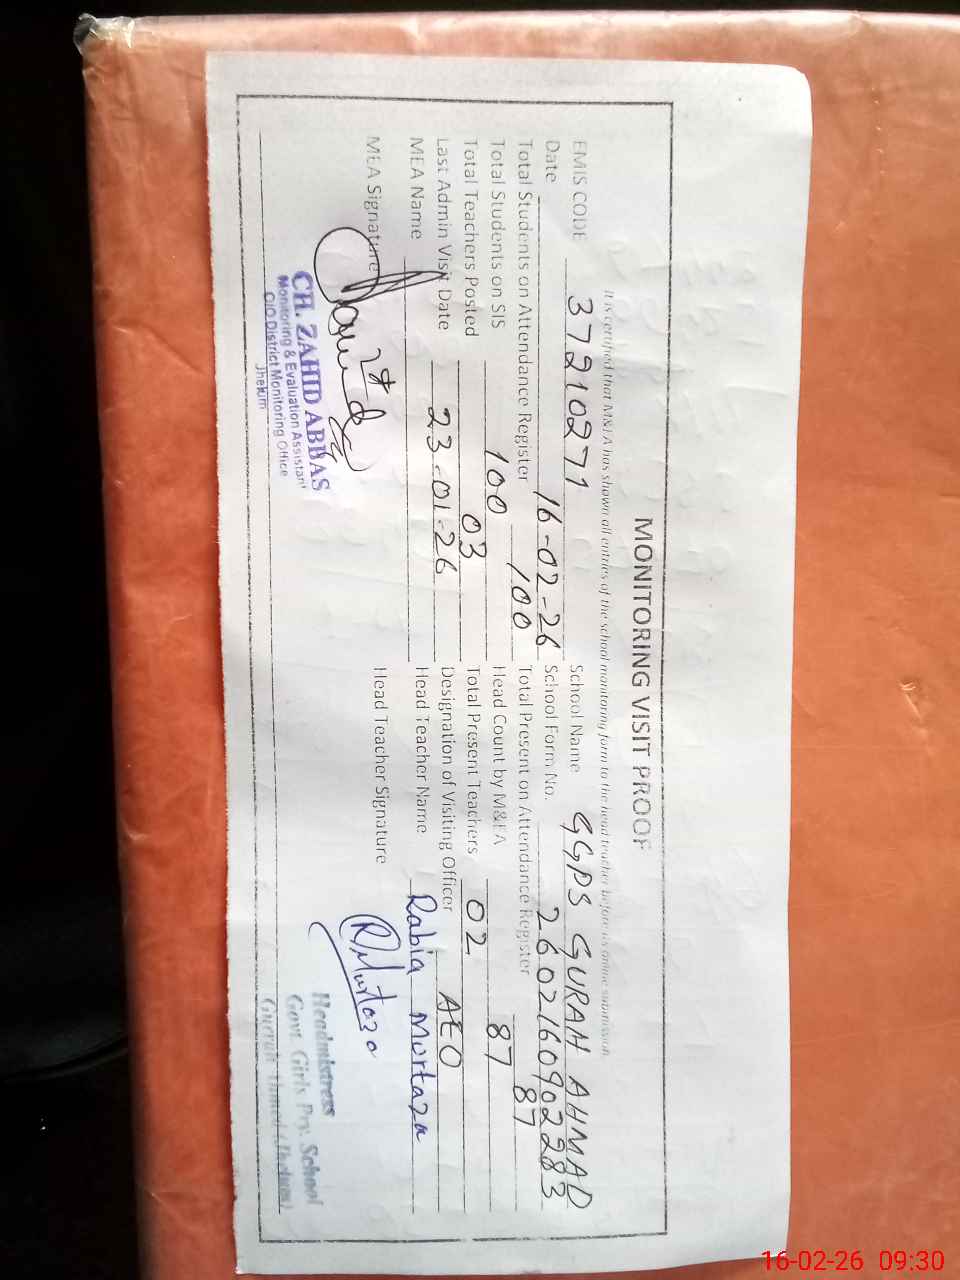 MONITORING VISIT PROOF
It is certified that M&EA has shown all entries of the school monitoring form to the head teacher before its online submission
EMIS CODE 37210271 School Name GGPS GURAH AHMAD
Date 16-02-26 School Form No. 2602160902283
Total Students on Attendance Register 100 Total Present on Attendance Register 87
Total Students on SIS 100 Head Count by M&EA 87
Total Teachers Posted 03 Total Present Teachers 02
Last Admin Visit Date 23-01-26 Designation of Visiting Officer AEO
MEA Name Head Teacher Name Rabia Murtaza
MEA Signature Head Teacher Signature R.Murtaza
CH. ZAHID ABBAS
Monitoring & Evaluation Assistant
O/O District Monitoring Office
Jhelum
Headmistress
Govt. Girls Pry. School
Ahmed (Jhelum)
16-02-26 09:30